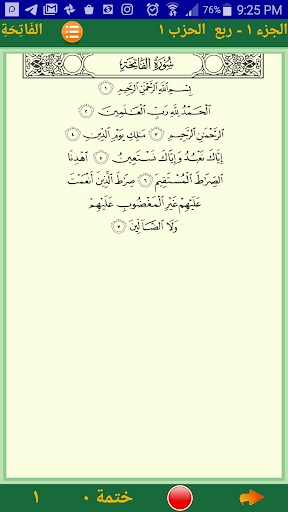 76% 9:25 PM
الجزء ١ - ربع الحزب ١ الفَاتِحَةِ
سُورَةُ الفَاتِحَةِ
بِسْمِ اللَّهِ الرَّحْمَٰنِ الرَّحِيمِ ١
الْحَمْدُ لِلَّهِ رَبِّ الْعَالَمِينَ ٢
الرَّحْمَٰنِ الرَّحِيمِ ٣ مَالِكِ يَوْمِ الدِّينِ ٤
إِيَّاكَ نَعْبُدُ وَإِيَّاكَ نَسْتَعِينُ ٥ اهْدِنَا
الصِّرَاطَ الْمُسْتَقِيمَ ٦ صِرَاطَ الَّذِينَ أَنْعَمْتَ
عَلَيْهِمْ غَيْرِ الْمَغْضُوبِ عَلَيْهِمْ
وَلَا الضَّالِّينَ ٧
ختمة ٠ ١